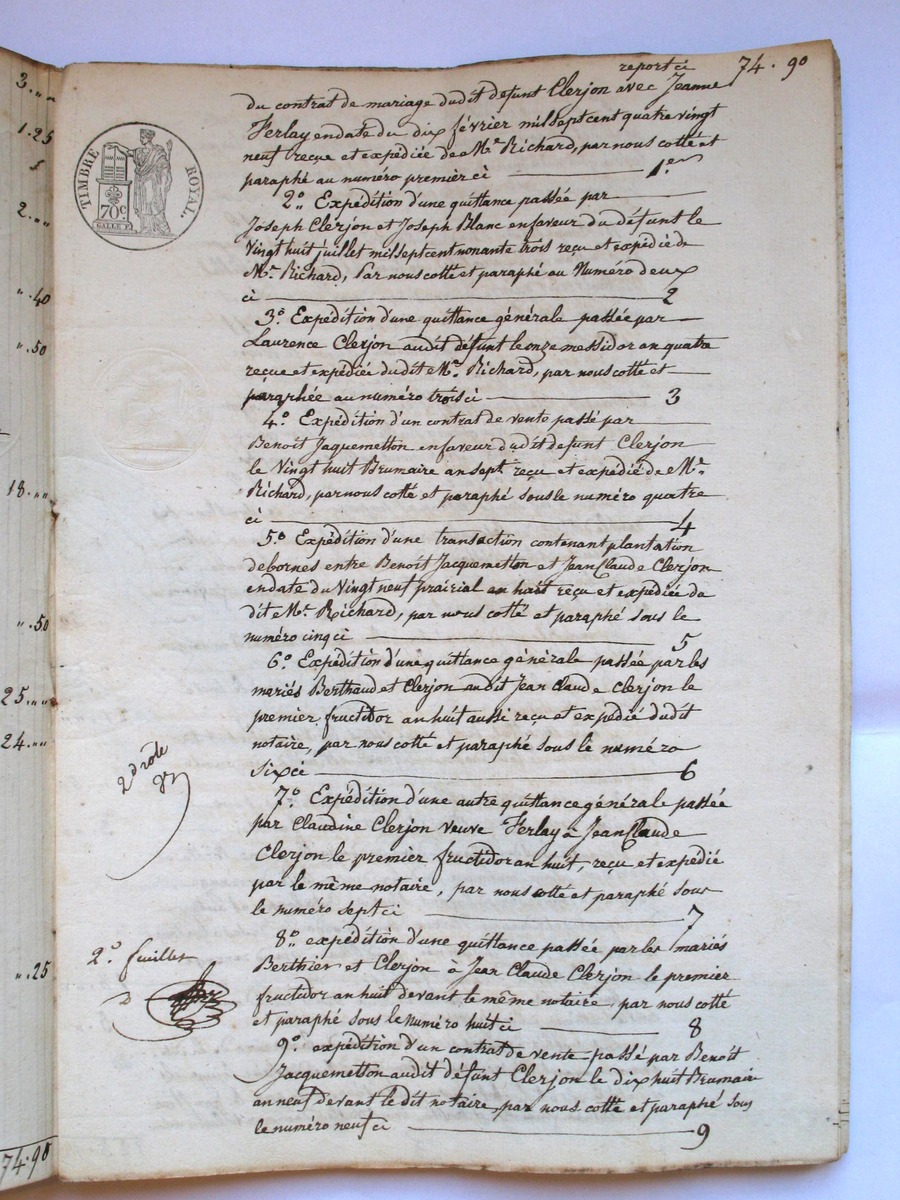 3.,,
1.25
2.,,
,,.40
,,.50
18.,,
,,.50
25.,,
24.,,
,,.25
74.90
TIMBRE ROYAL.
70c
SALLE F.
2d rôle
2º feuillet
report ci 74.90
du contrat de mariage dudit defunt Clerjon avec Jeanne
Ferlay en date du dix février mil sept cent quatre vingt
neuf reçue et expédiée de Mr. Richard, par nous cotté et
paraphé au numéro premier ci 1er
2º Expédition d'une quittance passée par
Joseph Clerjon et Joseph Blanc en faveur du défunt le
Vingt huit juillet mil sept cent nonante trois reçu et expédié de
Mr. Richard, Par nous cotté et paraphé au Numéro deux
ci 2
3º Expédition d'une quittance générale passée par
Laurence Clerjon audit défunt le onze messidor an quatre
reçue et expédiée dudit Mr. Richard, par nous cotté et
paraphée au numéro trois ci 3
4º Expédition d'un contrat de vente passé par
Benoît Jaquemetton en faveur dudit defunt Clerjon
le Vingt huit Brumaire an sept reçu et expédié de Mr.
Richard, par nous cotté et paraphé sous le numéro quatre
ci 4
5º Expédition d'une transaction contenant plantation
de bornes entre Benoît Jacquemetton et Jean Claude Clerjon
en date du Vingt neuf prairial an huit reçu et expédiée du
dit Mr. Richard, par nous cotté et paraphé sous le
numéro cinq ci 5
6º Expédition d'une quittance générale passée par les
mariés Berthaud et Clerjon audit Jean Claude Clerjon le
premier fructidor an huit aussi reçu et expédié dudit
notaire, par nous cotté et paraphé sous le numéro
six ci 6
7º Expédition d'une autre quittance générale passée
par Claudine Clerjon veuve Ferlay à Jean Claude
Clerjon le premier fructidor an huit, reçu et expédié
par le même notaire, par nous cotté et paraphé sous
le numéro sept ci 7
8º expédition d'une quittance passée par les mariés
Berthier et Clerjon à Jean Claude Clerjon le premier
fructidor an huit devant le même notaire, par nous cotté
et paraphé sous le numéro huit ci 8
9º expédition d'un contrat de vente passé par Benoît
Jacquemetton audit défunt Clerjon le dix huit Brumaire
an neuf devant le dit notaire, par nous cotté et paraphé sous
le numéro neuf ci 9